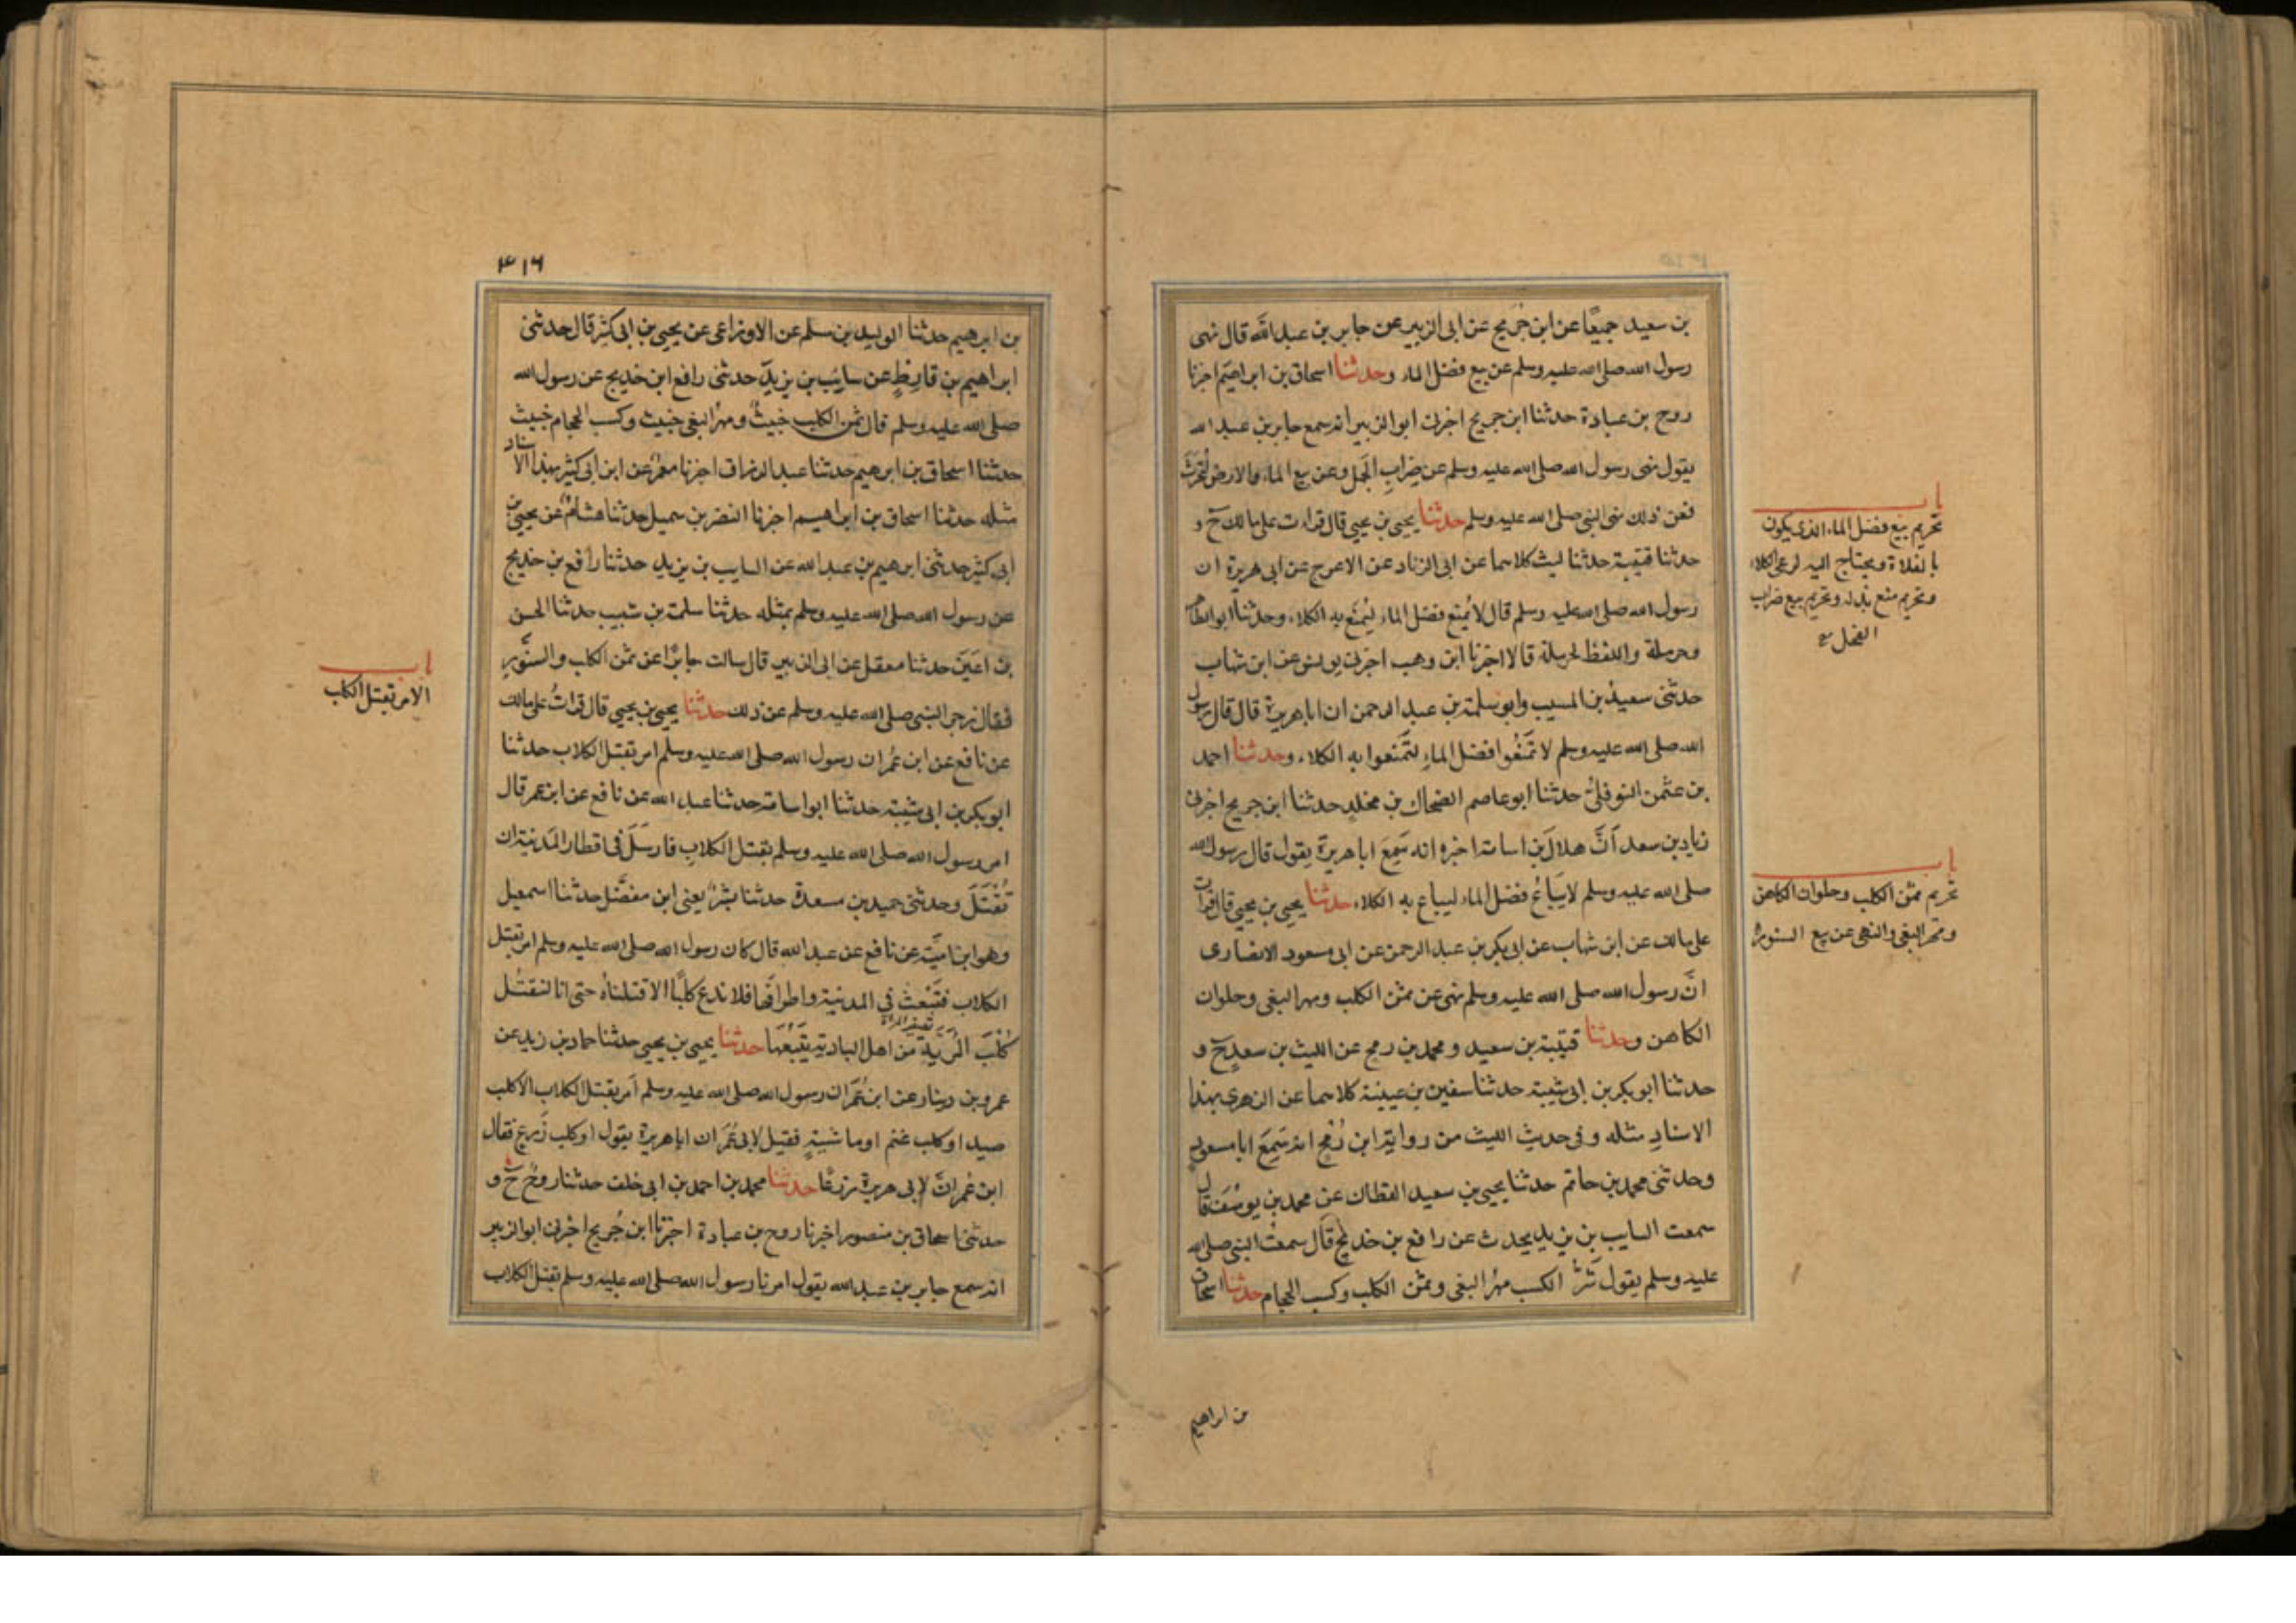 بن سعيد جميعًا عن ابن جُريج عن ابى الزبير عن جابر بن عبد الله قال نهى
رسول الله صلى الله عليه وسلم عن بيع فضل الماء وحدثنا اسحاق بن ابراهيم اخبرنا
روح بن عبادة حدثنا ابن جريج اخبرنى ابو الزبير انه سمع جابر بن عبد الله
يقول نهى رسول الله صلى الله عليه وسلم عن ضراب الجمل وعن بيع الماء والارض لتحرث
فعن ذلك نهى النبى صلى الله عليه وسلم حدثنا يحيى بن يحيى قال قراءت على مالك ح و
حدثنا قتيبة حدثنا ليث كلاهما عن ابى الزناد عن الاعرج عن ابى هريرة ان
رسول الله صلى الله عليه وسلم قال لا يُمنع فضل الماء ليُمنَع به الكلاء وحدثنا ابو الطاهر
وحرملة واللفظ لحرملة قالا اخبرنا ابن وهب اخبرنى يونس عن ابن شهاب
حدثنى سعيد بن المسيب وابو سلمة بن عبد الرحمن ان ابا هريرة قال قال رسول
الله صلى الله عليه وسلم لا تَمنَعُوا فضل الماءِ لتَمنعوا به الكلاء وحدثنا احمد
بن عثمن النوفلىُّ حدثنا ابو عاصم الضحاك بن مخلدٍ حدثنا ابن جريج اخبرنى
زياد بن سعد اَنَّ هلالَ بن اسامة اخبره انه سَمِعَ ابا هريرة يقول قال رسول الله
صلى الله عليه وسلم لا يُبَاعُ فضل الماء ليباع به الكلاء حدثنا يحيى بن يحيى قال قرأت
على مالك عن ابن شهاب عن ابى بكر بن عبد الرحمن عن ابى مسعود الانصارى
انَّ رسول الله صلى الله عليه وسلم نهى عن ثمن الكلب ومهر البغى وحلوان
الكاهن وحدثنا قتيبة بن سعيد ومحمد بن رمح عن الليث بن سعدٍ ح و
حدثنا ابو بكر بن ابى شيبة حدثنا سفين بن عيينة كلاهما عن الزهرى بهذا
الاسنادِ مثله وفى حديث الليث من رواية ابن رُمْحٍ انه سَمِعَ ابا مسعودٍ
وحدثنى محمد بن حاتم حدثنا يحيى بن سعيد القطان عن محمد بن يوسُفَ قال
سمعت السايب بن يزيد يحدث عن رافع بن خديج قال سمعت النبى صلى الله
عليه وسلم يقول شَرُّ الكسب مهرُ البغى وثمن الكلب وكسب الحجام حدثنا اسحاق
من ابراهيم
باب
تحريم بيع فضل الماء الذى يكون
بالفلاة ويحتاج اليه لرعى الكلاء
وتحريم منع بذله وتحريم بيع ضراب
الفحل
باب
تحريم ثمن الكلب وحلوان الكاهن
ومهر البغى والنهى عن بيع السنور
٣١٦
بن ابرهيم حدثنا الوليد بن مسلم عن الاوزاعى عن يحيى بن ابى كثير قال حدثنى
ابراهيم بن قارظٍ عن سايب بن يزيد حدثنى رافع ابن خديج عن رسول الله
صلى الله عليه وسلم قال ثمن الكلب خبيثٌ ومهرُ البغى خبيث وكسب الحجام خبيث
حدثنا اسحاق بن ابرهيم حدثنا عبد الرزاق اخبرنا معمرٌ عن ابن ابى كثير بهذا الاسناد
مثله حدثنا اسحاق بن ابراهيم اخبرنا النضر بن سميل حدثنا هشامٌ عن يحيى بن
ابى كثير حدثنى ابرهيم بن عبد الله عن السايب بن يزيد حدثنا رافع بن خديج
عن رسول الله صلى الله عليه وسلم بمثله حدثنا سلمة بن شبيب حدثنا الحسن
بن اعَينَ حدثنا معقل عن ابى الزبير قال سالت جابرًا عن ثمن الكلب والسنَّورِ
فقال زجر النبى صلى الله عليه وسلم عن ذلك حدثنا يحيى بن يحيى قال قراتُ على مالك
عن نافع عن ابن عُمر ان رسول الله صلى الله عليه وسلم امر بقتل الكلاب حدثنا
ابو بكر بن ابى شيبة حدثنا ابو اسامة حدثنا عبد الله عن نافع عن ابن عمر قال
امر رسول الله صلى الله عليه وسلم بقتل الكلابِ فارسَلَ فى اقطار المدينة ان
تُقْتَلَ وحدثنى حميد بن مسعدة حدثنا بشرٌ يعنى ابن مفضَّل حدثنا اسمعيل
وهو ابن اميَّة عن نافع عن عبد الله قال كان رسول الله صلى الله عليه وسلم امر بقتل
الكلاب فتَنبَعثُ فى المدينة واطرافها فلا ندع كلبًا الا قتلناهُ حتى انا لنقتُل
تصغير المراة
كلبَ المُرَيَّةِ من اهل البادية يَتبَعُهَا حدثنا يحيى بن يحيى حدثنا حماد بن زيد عن
عمرو بن دينار عن ابن عُمَر ان رسول الله صلى الله عليه وسلم اَمر بقتل الكلاب الا كلب
صيد او كلب غنم او ماشيةٍ فقيل لابى عُمَر ان ابا هريرة يقول او كلب زَرعٍ فقال
ابن عُمر انَّ لابى هريرة زرعًا حدثنا محمد بن احمد بن ابى خلف حدثنا روحٌ ح و
حدثنى اسحاق بن منصور اخبرنا روح بن عبادة اخبرنا ابن جُريج اخبرنى ابو الزبير
انه سمع جابر بن عبد الله يقول امرنا رسول الله صلى الله عليه وسلم بقتل الكلاب
باب
الامر بقتل الكلاب